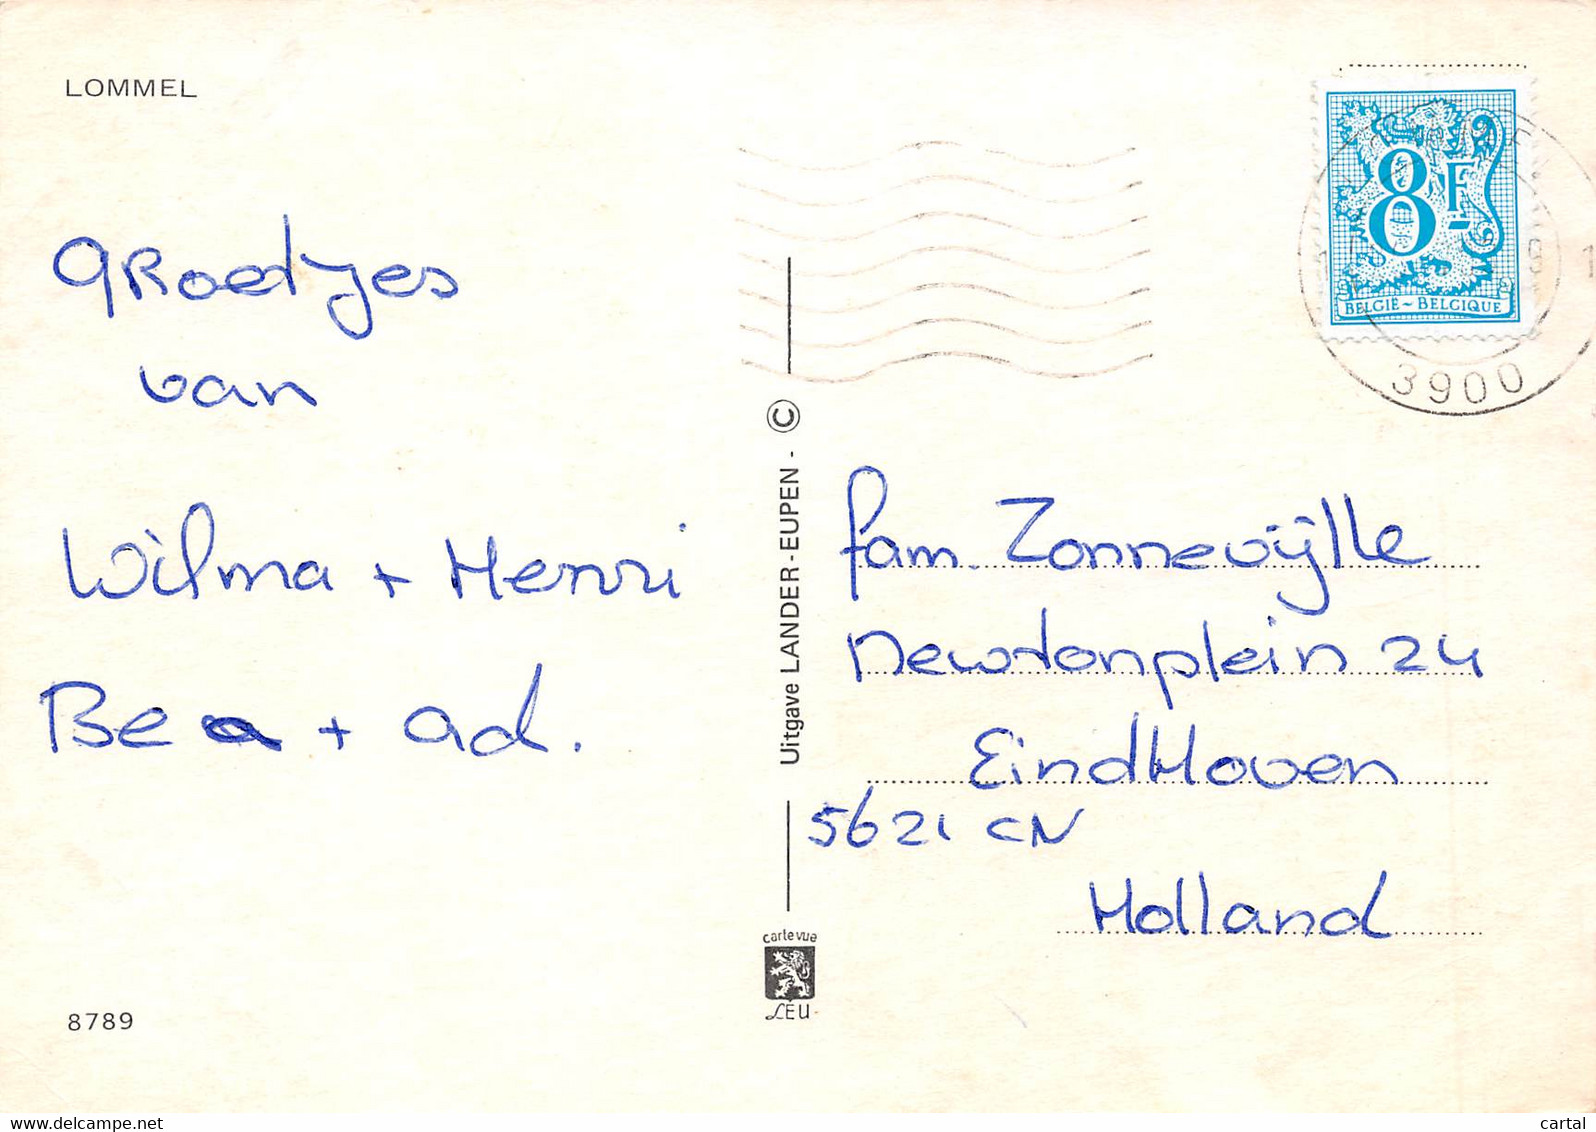 LOMMEL
8F
BELGIË ~ BELGIQUE
3900
GRoetjes
van
Wilma + Henri
Bea + ad.
Uitgave LANDER - EUPEN - ©
fam. Zonnevijlle
Newtonplein 24
EindHoven
5621 CN
Holland
carte vue
LEU
8789
www.delcampe.net
cartal